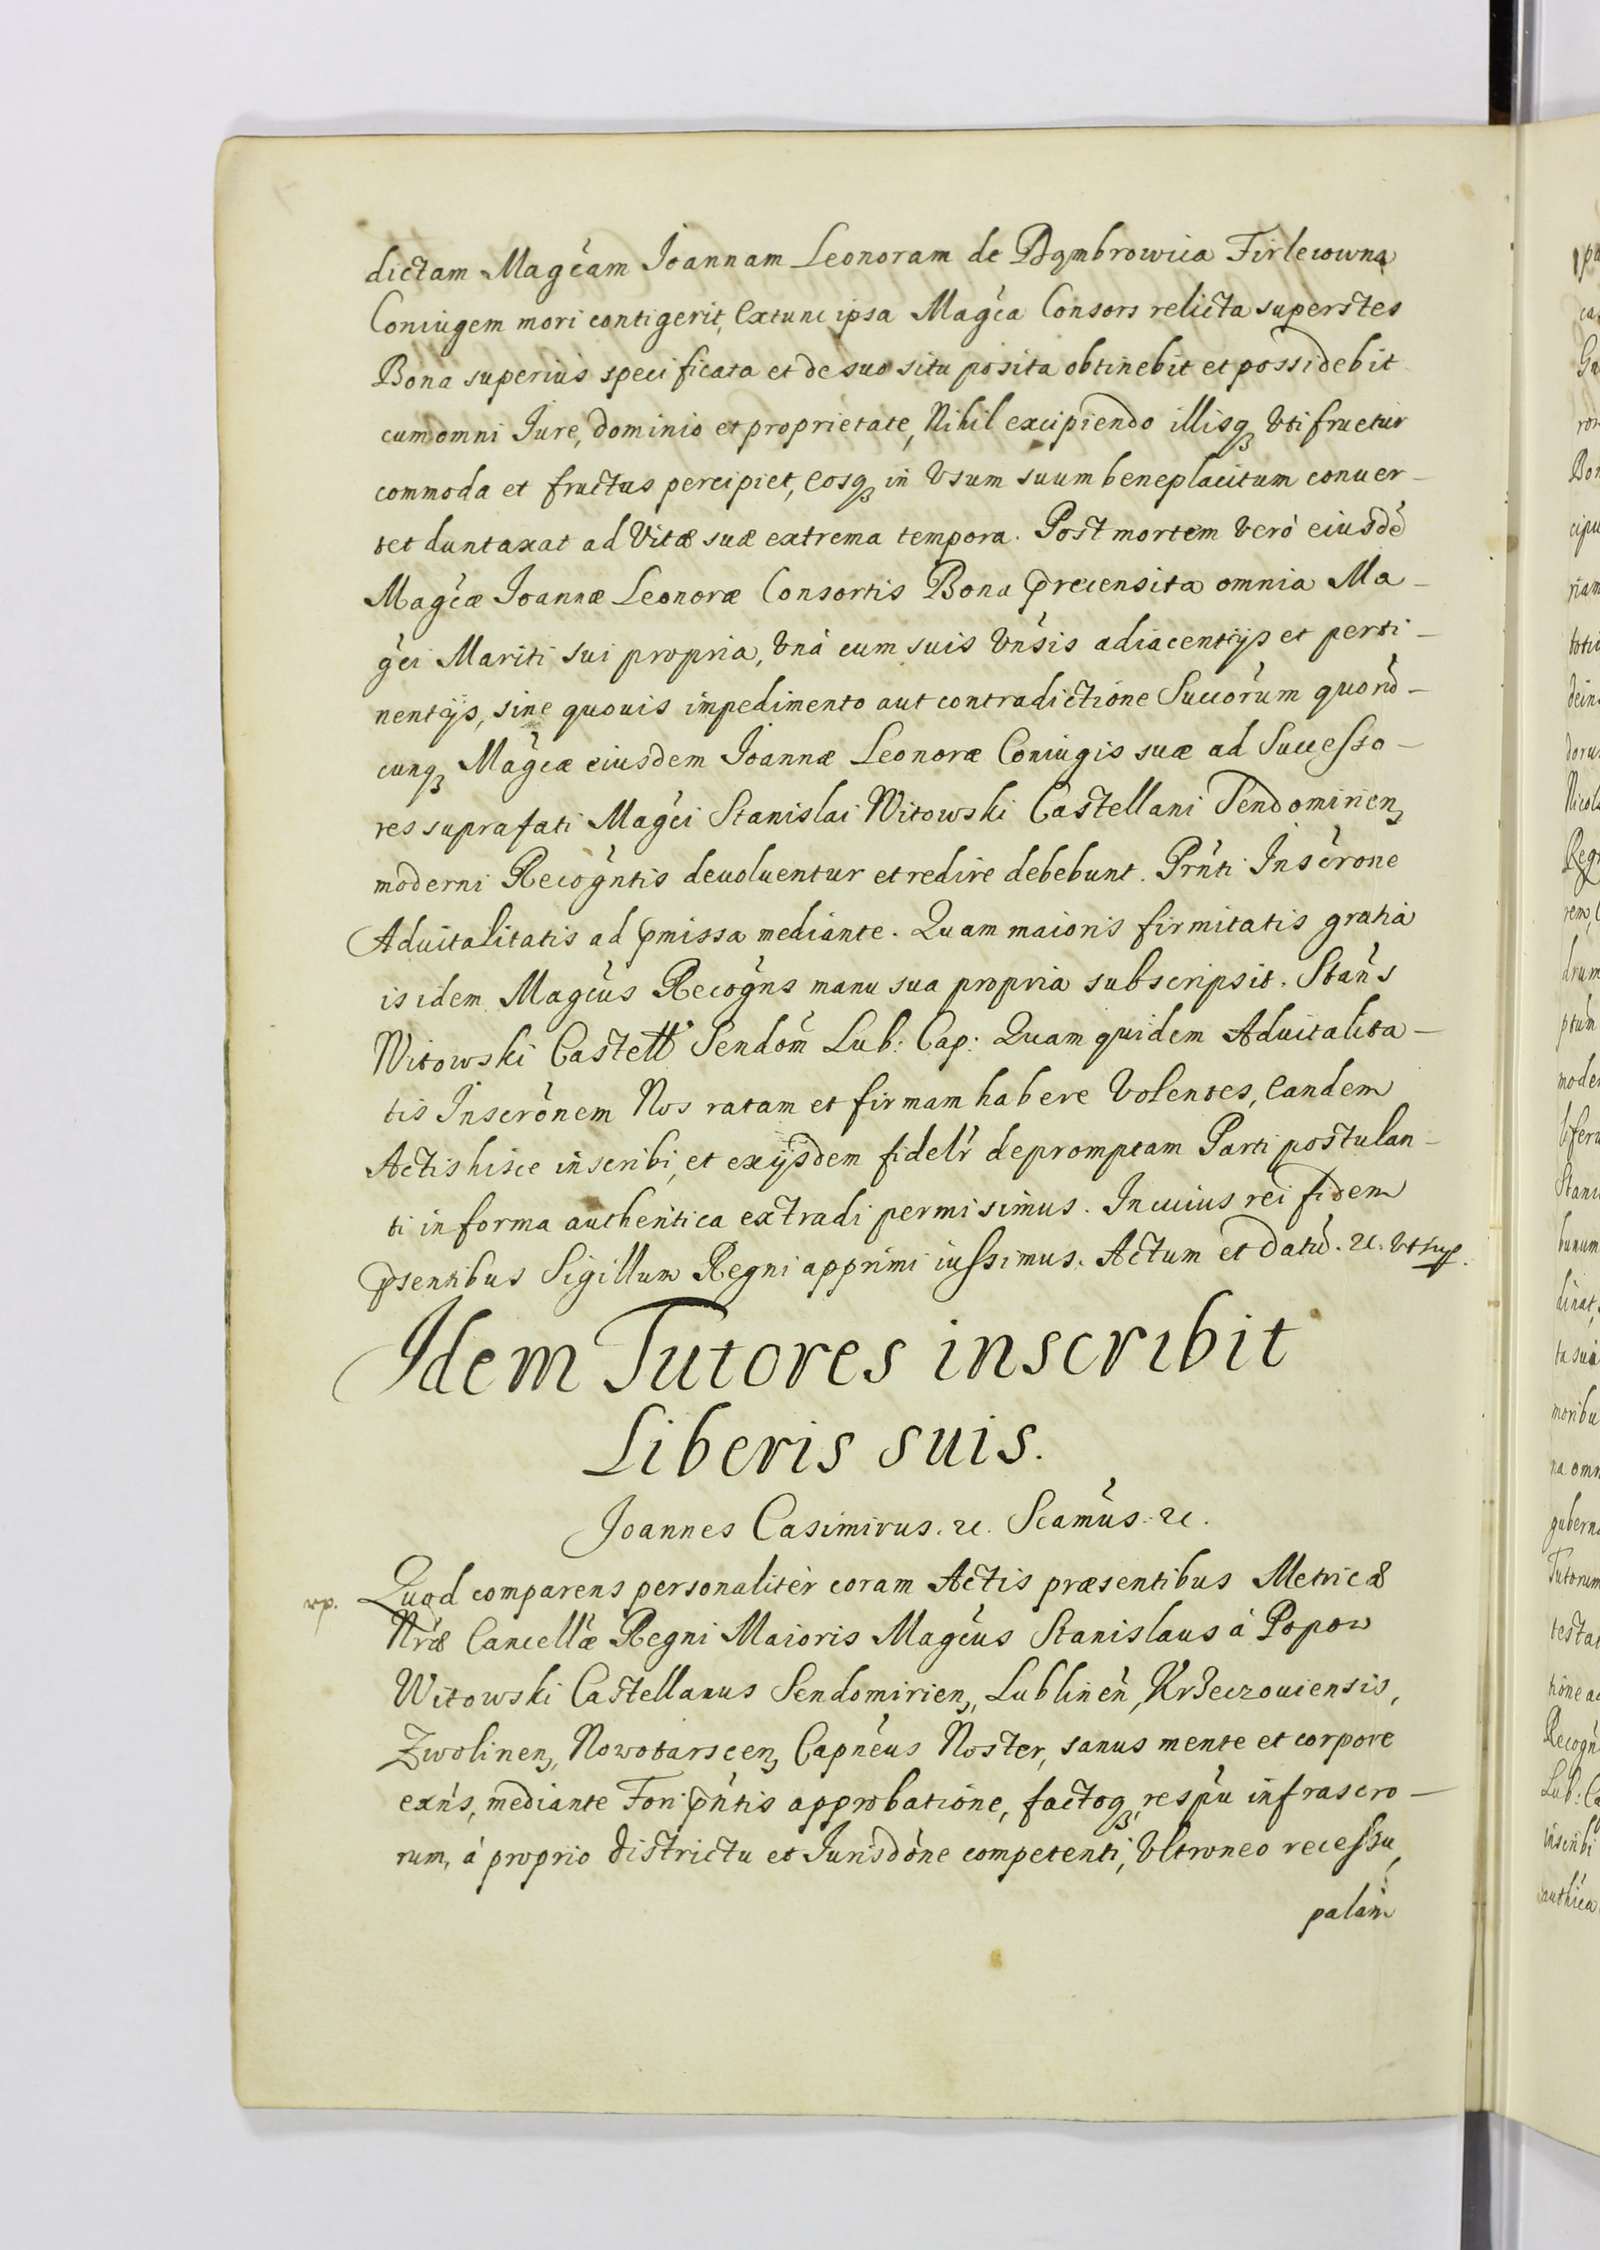 dictam Magcam Joannam Leonoram de Dąmbrowica Firleiowna
Coniugem mori contigerit, Extunc ipsa Magca Consors relicta superstes
Bona superius specificata et de suo situ posita obtinebit et possidebit
cum omni Jure, dominio et proprietate, Nihil excipiendo illisq3 Vti fruetur
commoda et fructus percipiet, eosq3 in Vsum suum beneplacitum conuer-
tet duntaxat ad Vitæ suæ extrema tempora. Post mortem Verò eiusdē
Magcæ Joannæ Leonoræ Consortis Bona precensita omnia Ma-
gci Mariti sui propria, Vnà cum suis Vnsis adiacentijs et perti-
nentijs, sine quouis impedimento aut contradictione Succorum quorū-
cunq3 Magcæ eiusdem Joannæ Leonoræ Coniugis suæ ad Successo-
res suprafati Magci Stanislai Witowski Castellani Sendomirien3
moderni Recogntis deuoluentur et redire debebunt. Prnti Inscrone
Aduitalitatis ad pmissa mediante. Quam maioris firmitatis gratia
is idem Magcus Recogns manu sua propria subscripsit. Stans
Witowski Castell Sendom Lub: Cap: Quam quidem Aduitalita-
tis Inscronem Nos ratam et firmam habere Volentes, eandem
Actis hisce inscribi, et ex ijsdem fidelr depromptam Parti postulan-
ti in forma authentica extradi permisimus. In cuius rei fidem
psentibus Sigillum Regni apprimi iussimus. Actum et datū. &c. Vt sup.
Idem Tutores inscribit
Liberis suis.
Joannes Casimirus. &c. Scamus. &c.
rp. Quod comparens personalitèr coram Actis præsentibus Metricæ
Nræ Cancellæ Regni Maioris Magcus Stanislaus à Popow
Witowski Castellanus Sendomirien3, Lublinen, Krzeczouiensis,
Zwolinen3, Nowotarscen3 Capneus Noster, sanus mente et corpore
exns, mediante Fori pntis approbatione, factoq3 respu infrascro-
rum, à proprio districtu et Jurisdone competenti, Vltroneo recessu,
palàm